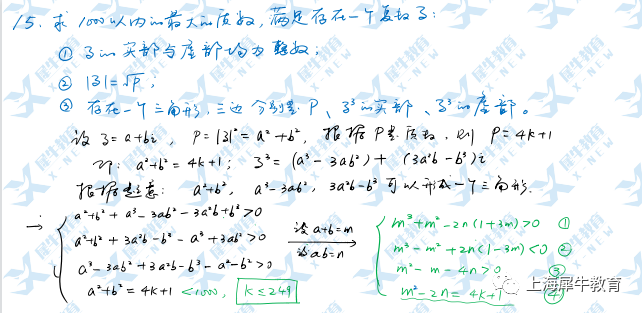 15. 求1000以内的最大的质数,满足存在一个复数z:
① z的实部与虚部均为整数;
② |z|=√P;
③ 存在一个三角形,三边分别是P、z³的实部、z³的虚部。
设z=a+bi, P=|z|²=a²+b², 根据P是质数,则 P=4k+1
即: a²+b²=4k+1; z³=(a³-3ab²)+(3a²b-b³)i
根据题意: a²+b², a³-3ab², 3a²b-b³可以形成一个三角形.
→ { a²+b²+a³-3ab²-3a²b+b³>0
a²+b²+3a²b-b³-a³+3ab²>0
a³-3ab²+3a²b-b³-a²-b²>0
a²+b²=4k+1<1000, k≤249
设a+b=m
设ab=n
{ m³+m²-2n(1+3m)>0 ①
m³-m²+2n(1-3m)<0 ②
m²-m-4n>0 ③
m²-2n=4k+1 ④
上海犀牛教育
犀牛教育
X-NEW